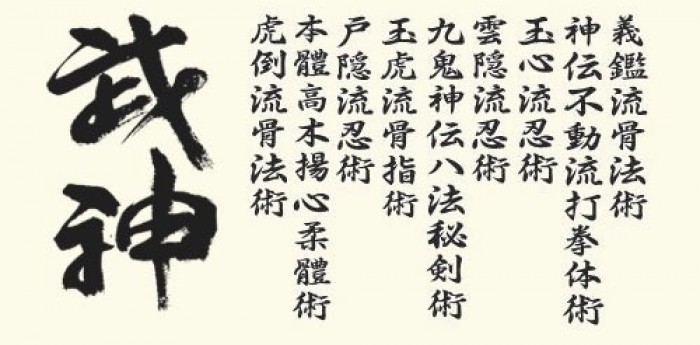 義鑑流骨法術
神伝不動流打拳体術
玉心流忍術
雲隠流忍術
九鬼神伝八法秘剣術
玉虎流骨指術
戸隠流忍術
本體高木揚心柔體術
虎倒流骨法術
武神